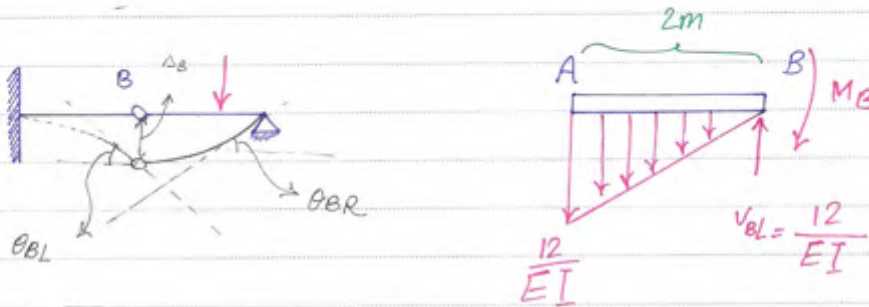 B
Δ_B
θ_BL
θ_BR
2m
A
B
M_B
12/EI
V_BL = 12/EI